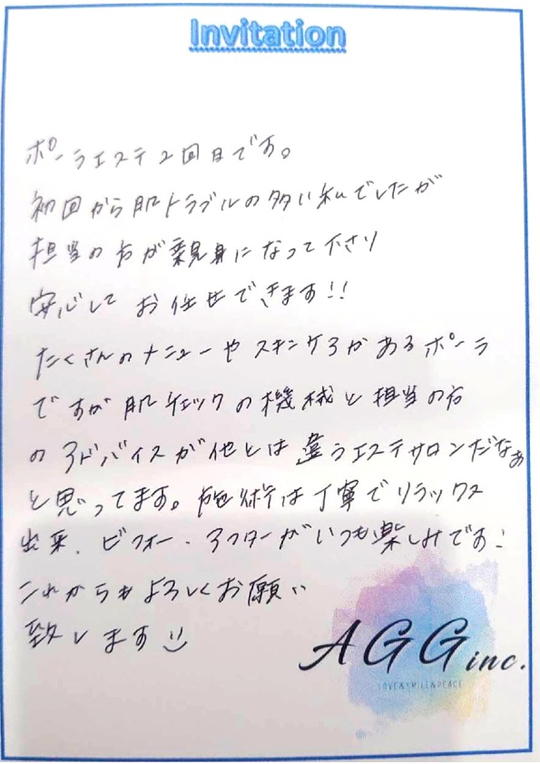 Invitation
ポーラエステ2回目です。
初回から肌トラブルの多い私でしたが
担当の方が親身になって下さり
安心して お任せできます!!
たくさんのメニューや スキンケアがあるポーラ
ですが 肌チェックの機械と担当の方
のアドバイスが他とは違うエステサロンだなぁ
と思ってます。施術は丁寧でリラックス
出来、ビフォー・アフターがいつも楽しみです!
これからもよろしくお願い
致します
AGG inc.
LOVE&SMILE&PEACE